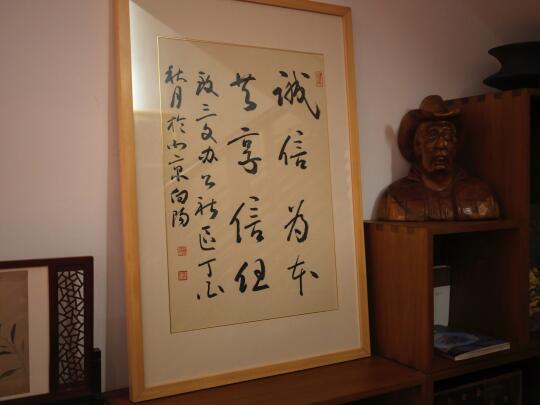 诚信为本
共享信任
致三文办公社区丁酉
秋月於北京向阳